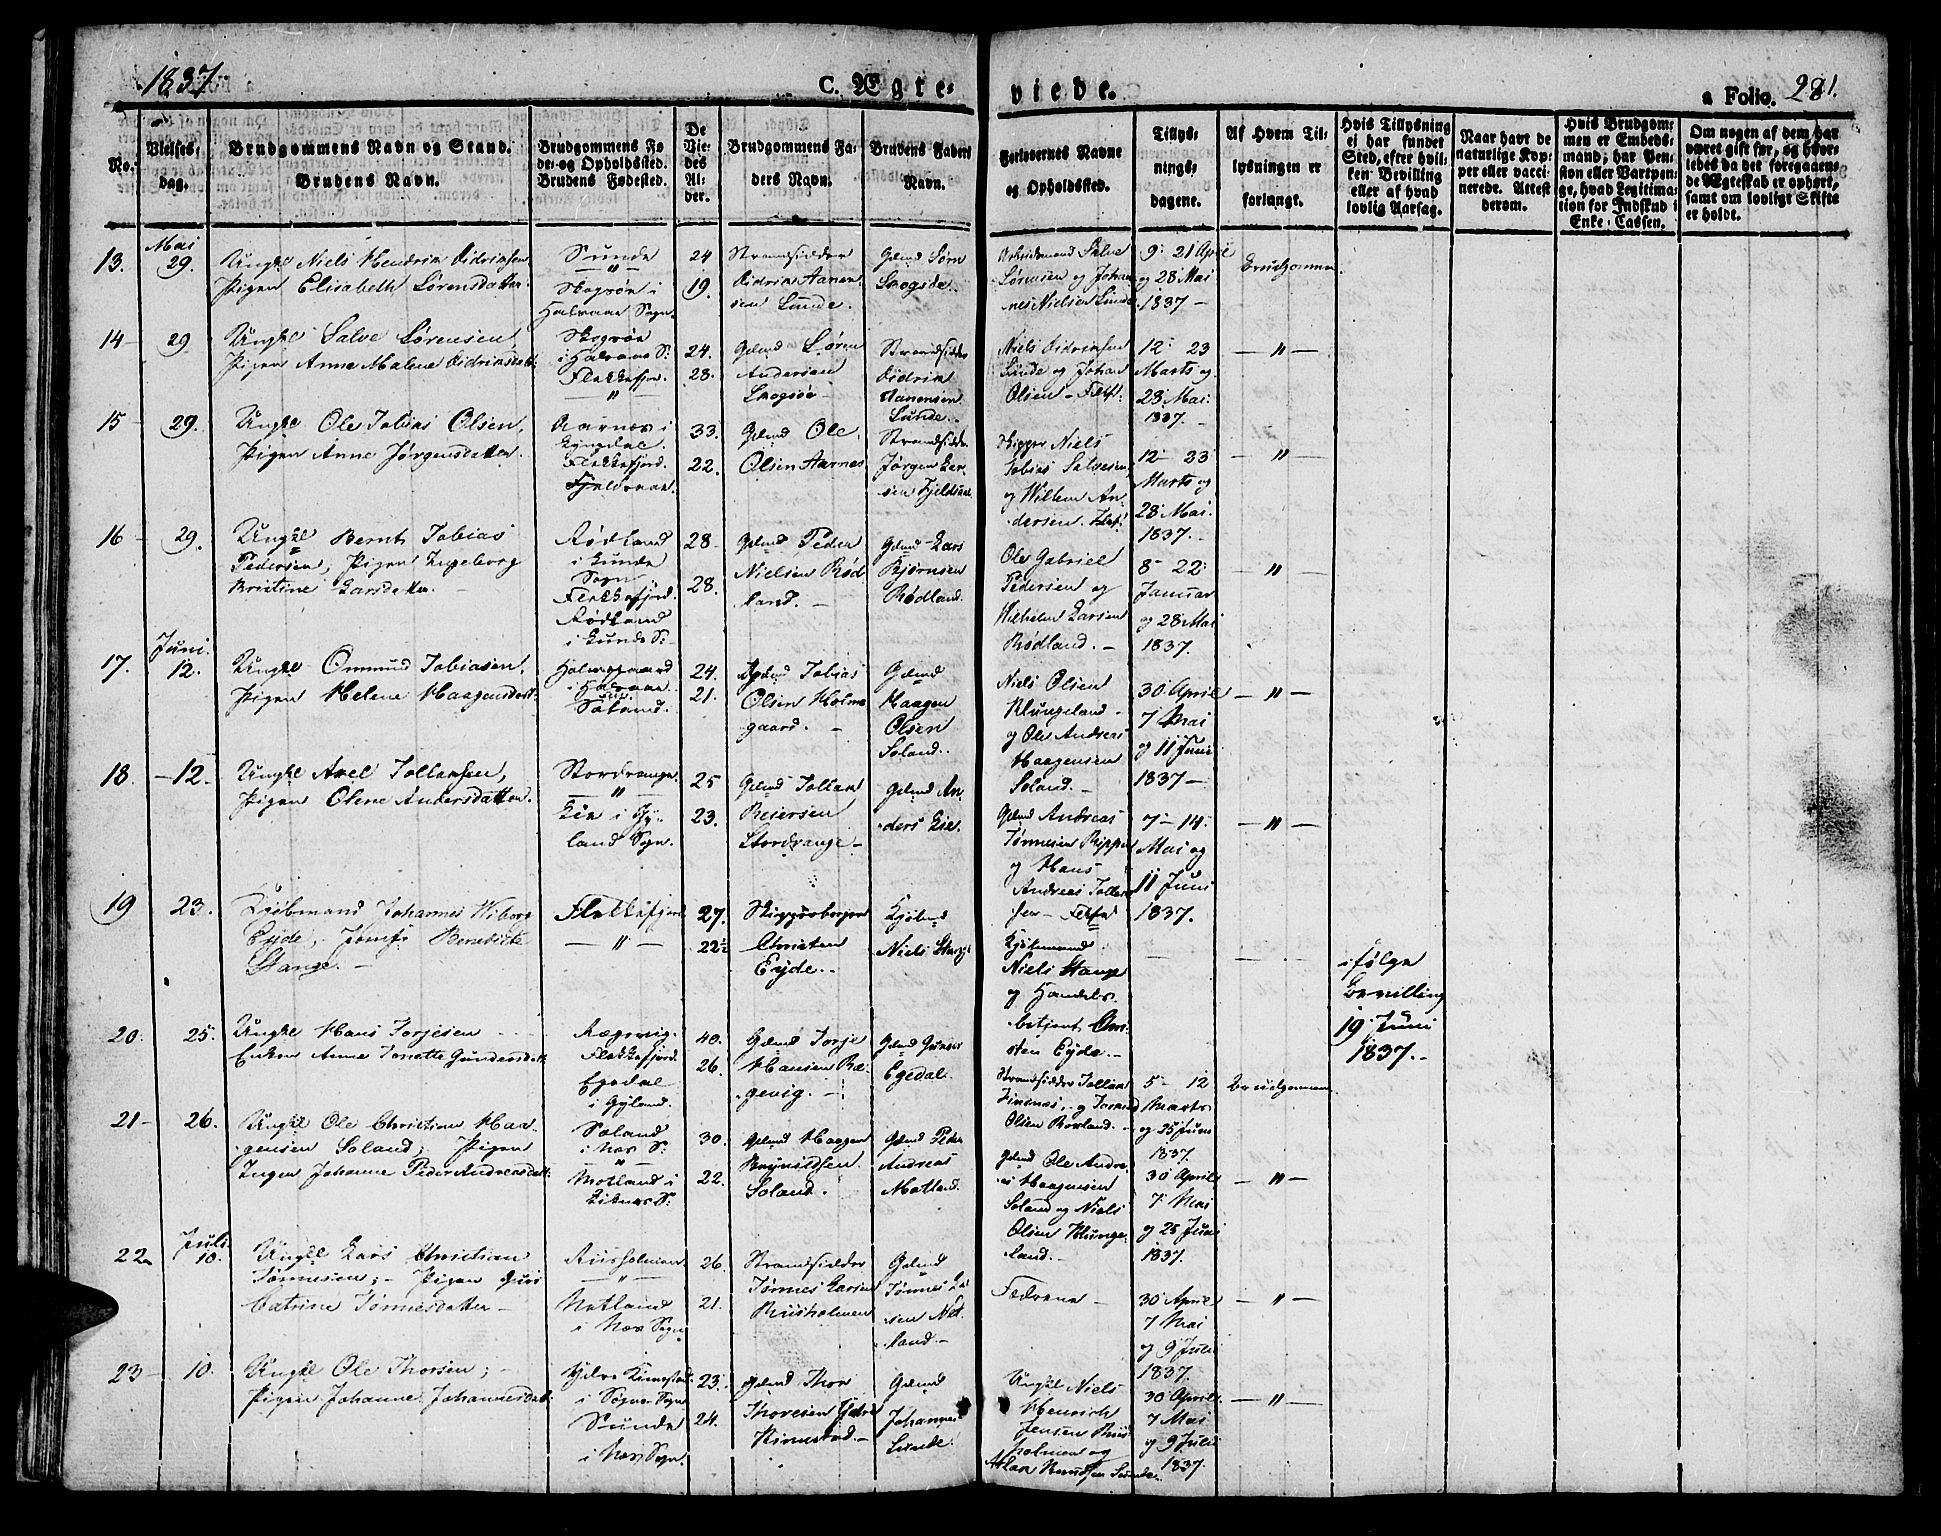 1837.
C. Ægte-
viede.
a Folio. 281.
No.
Vielses-
dag.
Brudgommens Navn og Stand.
Brudens Navn.
Brudgommens Fø
de- og Opholdssted.
Brudens Fødested.
De
Vie-
des
Al-
der.
Brudgommens Fa-
ders Navn.
Brudens Faders
Navn.
Forlovernes Navne
og Opholdssted.
Tillys-
nings-
dagene.
Af Hvem Til-
lysningen er
forlangt.
Hvis Tillysning
ei har fundet
Sted, efter hvil-
ken Bevilling
eller af hvad
lovlig Aarsag.
Naar havt de
naturlige Kop-
per eller vacci-
nerede. Attest
derom.
Hvis Brudgom-
men er Embeds-
mand, har Pen-
sion eller Vartpen-
ge, hvad Legitima-
tion for Indskud i
Enke-Cassen.
Om nogen af dem har
været gift før, og hvor-
ledes da det foregaaen-
de Ægteskab er ophørt,
samt om lovligt Skifte
er holdt.
13.
Mai
29.
Ungkl Niels Hendrik Didriksen
Pigen Elisabeth Sørensdatter.
Sunde
"
Skogsøn i
Halvaae Sogn.
24
19.
Strandsidder
Didrik Aanen-
sen Sunde.
Gdmd Sørn
Skogsøe.
Arbeidsmand Salve
Sørensen og Johan
nes Nielsen Sunde
9: 21 April
og 28 Mai
1837 -
Brudgommen.
14 -
29
Ungkl Salve Sørensen,
Pigen Anne Malene Didriksdatt:
Skogsøn
i Halvaae S:
Flekkefjor.
"
24.
28.
Gdmd Søren
Andersen
Skogsøe
Strandsidder
Didrik
Aanensen
Sunde.
Niels Didriksen
Sunde og Johan
Olsen - Flekf:
12: 23
Marts og
28 Mai
1837.
- " -
15 -
29.
Ungkl Ole Tobias Olsen,
Pigen Anne Jørgensdatter.
Aarnes i
Lyngdal.
Flekkefjord.
Fjeldsaae.
33.
22.
Gdmd Ole
Olsen Aarnes
Strandsidder
Jørgen Lar-
sen Fjeldsaae
Skipper Niels
Tobias Salvesen,
og Willem An-
dersen. Flekf:
12 - 23
Marts og
28 Mai.
1837.
- " -
16 -
29.
Ungkl Bernt Tobias
Pedersen, Pigen Ingeborg
Kristine Larsdatter. -
Rødland
i Lunde
Sogn
Flekkefjord.
Rødland
i Lunde S:
28
28.
Gdmd Peder
Nielsen Rød
land. -
Gdmd Lars
Bjørnsen
Rødland.
Ole Gabriel
Pedersen og
Wilhelm Larsen
Rødland. -
8 - 22:
Januar
og 28 Mai
1837.
"
17.
Juni.
12.
Ungkl Ommund Tobiasen,
Pigen Helene Haagensdatt:
Holmegaard
i Halvaae
Soland.
24.
21.
Gdmd Tobias
Olsen Holme
gaard. -
Gdmd
Haagen
Olsen
Soland.
Niels Olsen
Klungeland -
og Ole Andreas
Haagensen
Soland. -
30 April
7 Mai
og 11 Juni
1837 -
- " -
18.
- 12.
Ungkl Axel Tollaksen,
Pigen Olene Andersdatter.
Stordrange.
"
Lie i Gy-
land Sogn.
25
23.
Gdmd Tollak
Reiersen
Stordrange -
Gdmd An-
ders Lie.
Gdmd Andreas
Tønnesen
og Hans
Andreas Tollak
sen - Flekf:
7 - 14.
Mai og
11 Juni
1837.
- " -
19
23.
Kjøbmand Johannes Wiborg
Eyde, Jomfr Benedicte
Stange. -
Flekkefjord
- " -
27.
22½
Skipsborger
Christen
Eyde..
Kjøbmd
Niels Stange
Kjøbmand
Niels Stange
og Handels-
betjent Chri-
sten Eyde. -
-
-
ifølge
Bevilling
19 Juni
1837. -
20.
25.
Ungkl Hans Torjesen
Enken Anne Tonette Gundersdatt:
Rægevig.
Flekkefjord.
Egedal
i Gyland.
40.
26.
Gdmd Torje
Hansen Ræ-
gevig. -
Gdmd Gunder
Egedal.
Strandsidder Tollak
Olsen Rørland. -
5 - 12
Marts
og 25 Juni
1837.
Brudgommen
21 -
26.
Ungkl Ole Christian Haa-
gensen Soland; Pigen
Inger Johanne PederAndreasdatt:
Soland
i Næs S:
- " -
Motland i
Liknæs S:
30.
22.
Gdmd Haagen
Reynildsen
Soland.
Gdmd Peder
Andreas
Motland.
Gdmd Ole Andre-
as Haagensen
Soland og Niels
Olsen Klunge-
land. -
30 April
7 Mai
og 25 Juni
1837.
- " -
22
Juli.
10.
Ungkl Lars Christian
Tønnesen; - Pigen Guri
Catrine Tønnesdatter -
Riisholmen
- " -
Netland
i Næs Sogn
26.
21.
Strandsidder
Tønnes Larsen
Riisholmen
Gdmd
Tønnes La-
sen Net-
land. -
Fædrene -
30 April
7 Mai
og 9 Juli
1837.
- " -
23 -
10.
Ungkl Ole Thorsen; -
Pigen Johanne Johannesdatt:
Ydre Kirnestad
i Sogne Sogn
Sunde
i Næs Sogn.
23.
24.
Gdmd Thor
Thoresen Ydre
Kirnestad. -
Gdmd
Johannes
Sunde.
Ungkl Niels
Henrich
Jensen Riis
holmen og
Aslak Knudsen Sunde.
30 April
7 Mai
og 9 Juli
1837.
- " -